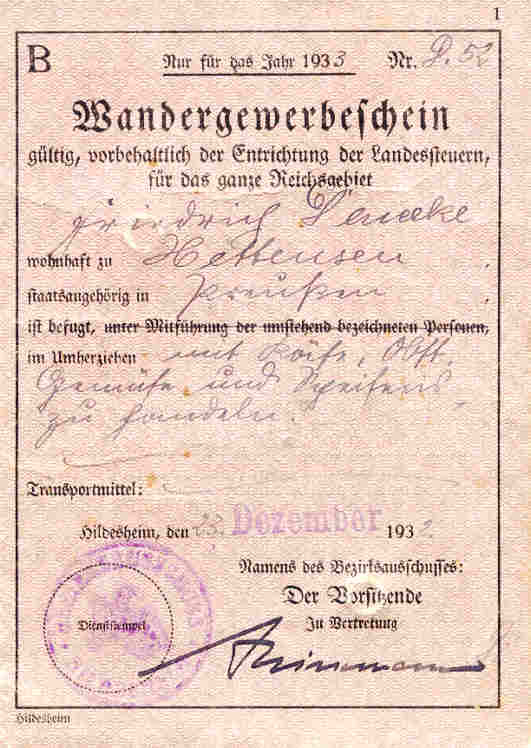 1
B
Nur für das Jahr 1933 Nr. D. 52
Wandergewerbeschein
gültig, vorbehaltlich der Entrichtung der Landessteuern,
für das ganze Reichsgebiet
Friedrich
wohnhaft zu Hettensen
staatsangehörig in Preußen
ist befugt, unter Mitführung der umstehend bezeichneten Personen,
im Umherziehen mit Käse, Obst,
Gemüse und
zu handeln.
Transportmittel:
Hildesheim, den 23. Dezember 1932.
Namens des Bezirksausschusses:
Der Vorsitzende
In Vertretung
Dienststempel
Hildesheim